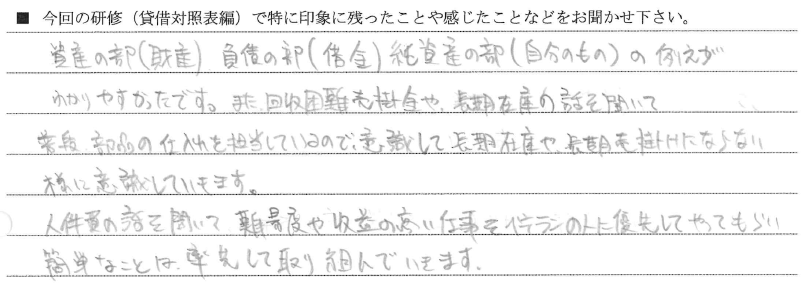 ■ 今回の研修（貸借対照表編）で特に印象に残ったことや感じたことなどをお聞かせ下さい。
資産の部（財産）負債の部（借金）純資産の部（自分のもの）の例えが
わかりやすかったです。また、回収困難売掛金や、長期在庫の話を聞いて
普段、部品の仕入れを担当しているので、意識して長期在庫や、長期売掛にならない
様に意識していきます。
人件費の話を聞いて 難易度や収益の高い仕事をベテランの人に優先してやってもらい
簡単なことは、率先して取り組んでいきます。